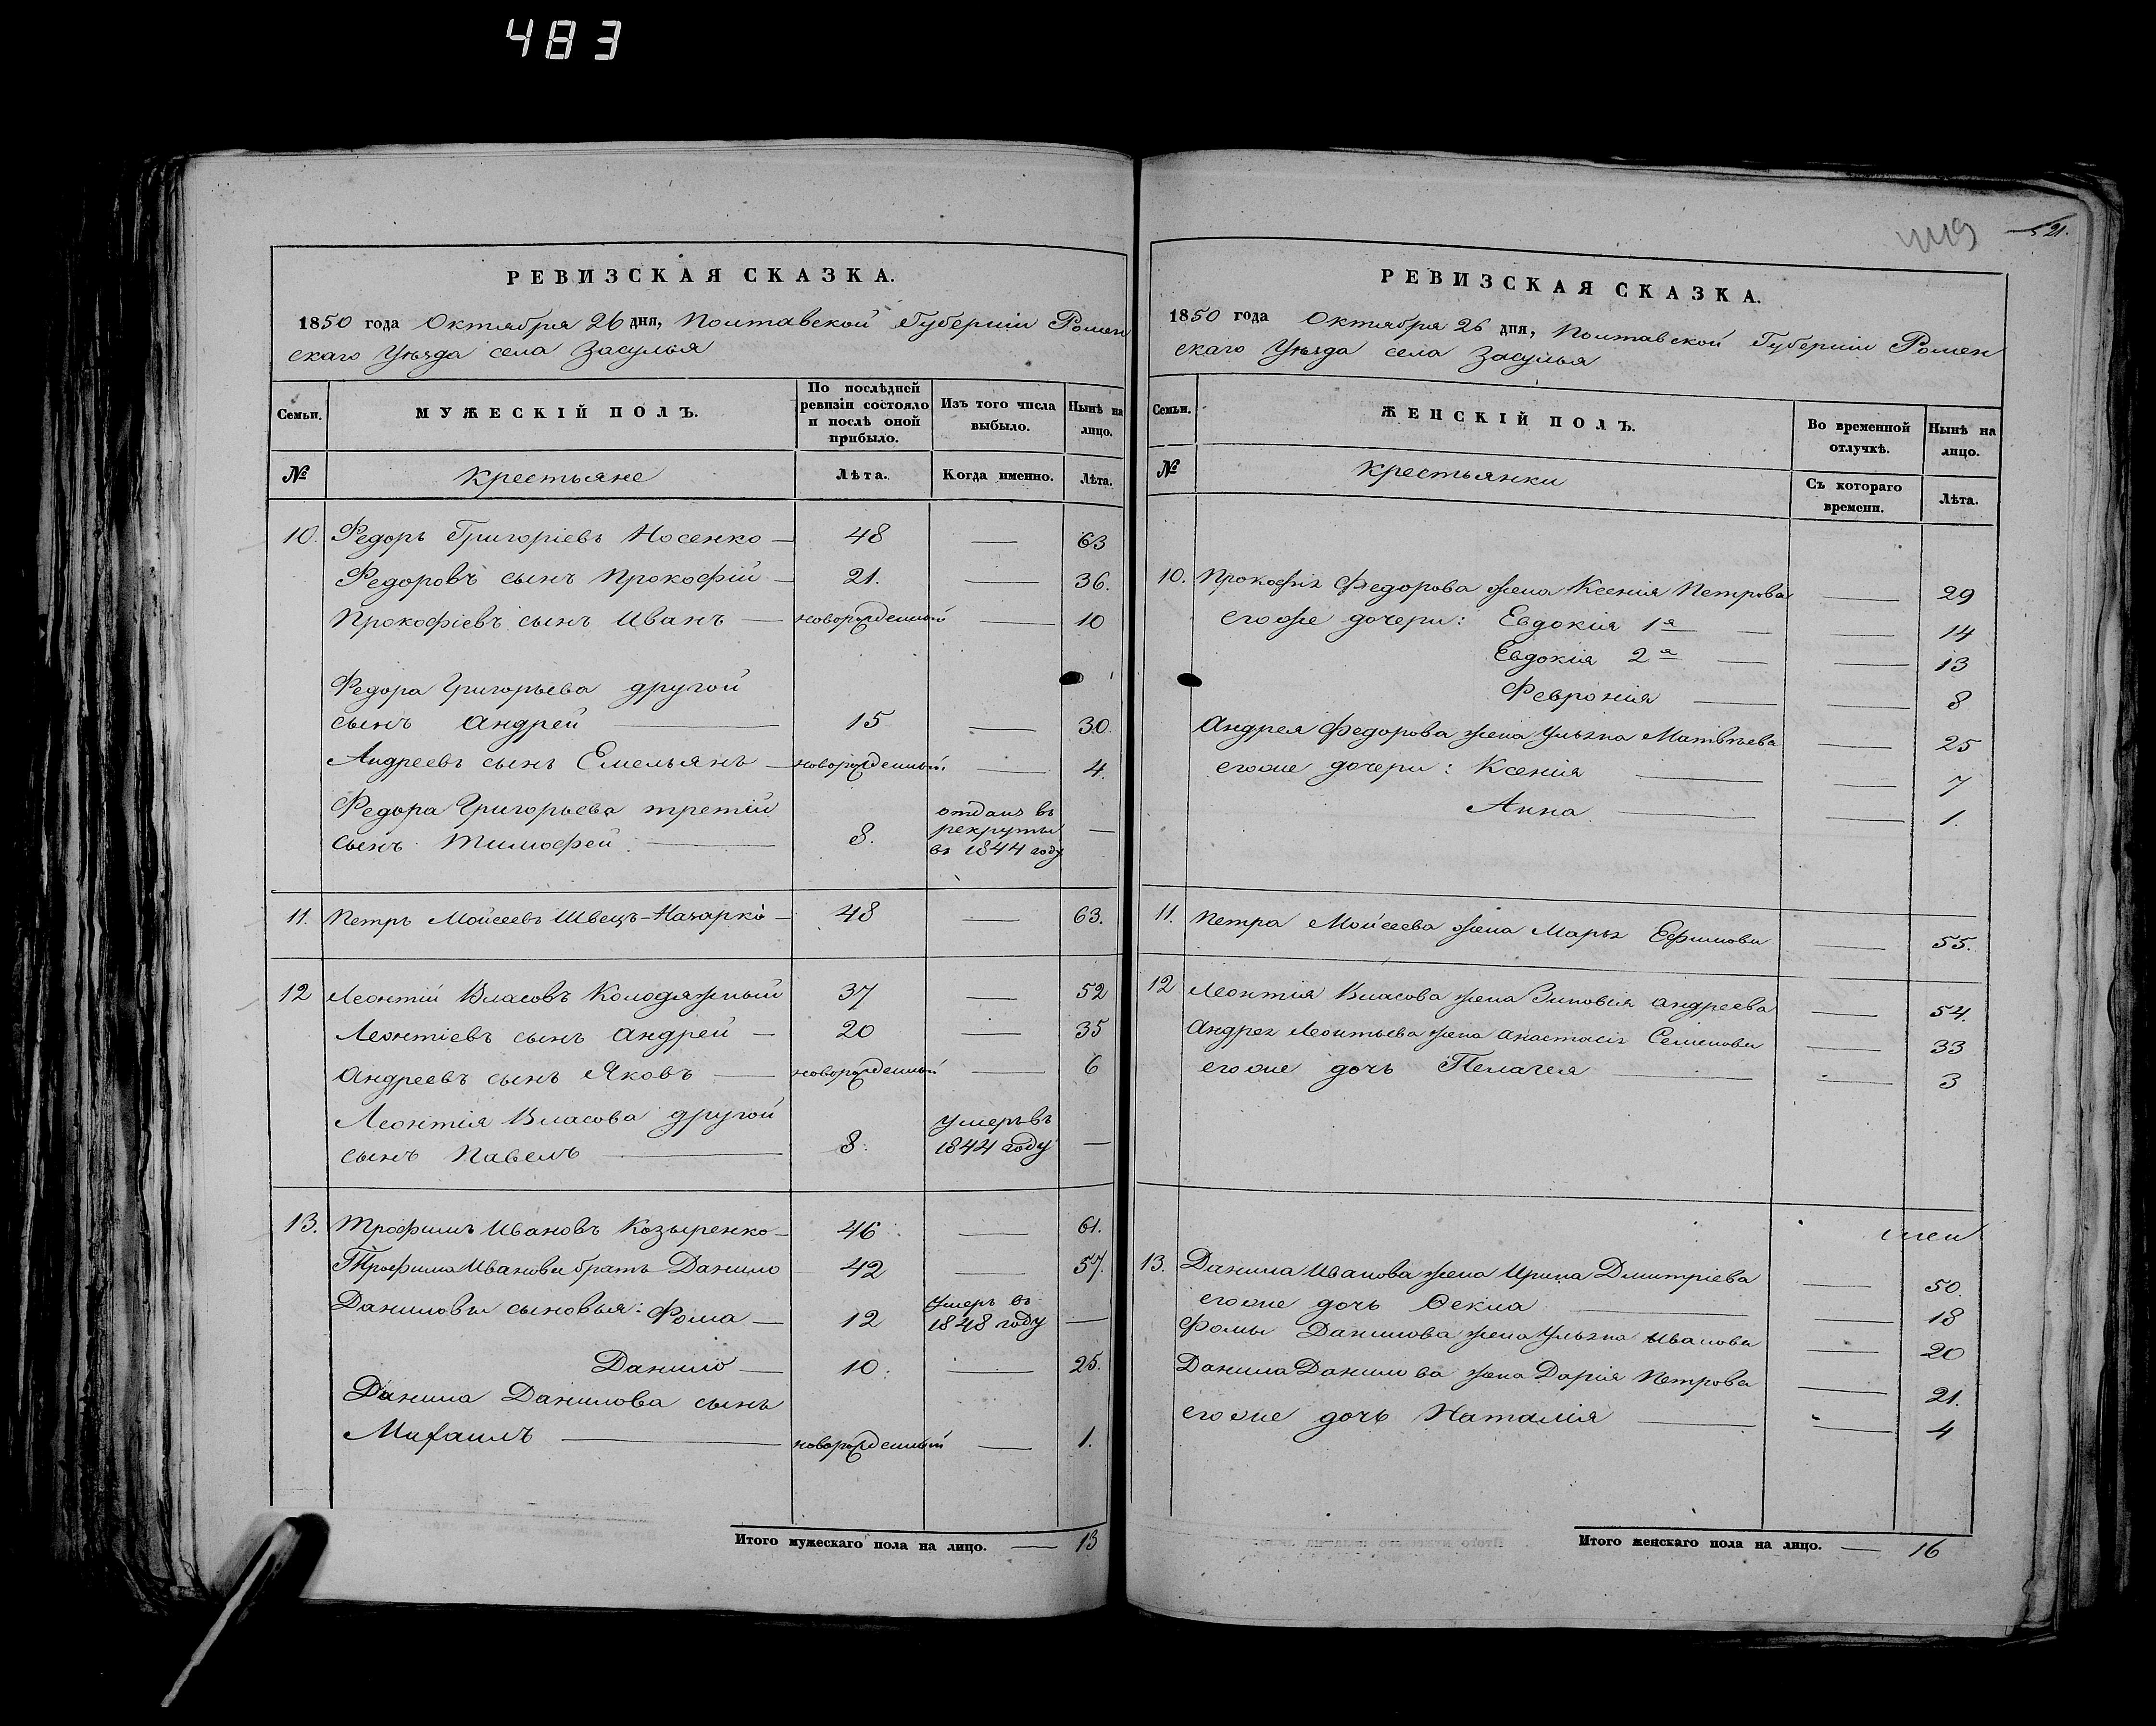 483
РЕВИЗСКАЯ СКАЗКА.
1850 года Октября 26 дня, Полтавской Губерніи Ромен
скаго Уѣзда села Засулья
Семьи.
МУЖЕСКІЙ ПОЛЪ.
По послѣдней ревизіи состояло и послѣ оной прибыло.
Изъ того числа выбыло.
Нынѣ на лицо.
№ Крестьяне Лѣта. Когда именно. Лѣта.
10. Федоръ Григоріевъ Носенко — 48 — 63
Федоровъ сынъ Прокофій — 21. — 36.
Прокофіевъ сынъ Иванъ — новорожденный — 10
Федора Григорьева другой
сынъ Андрей — 15 — 30.
Андреевъ сынъ Емельянъ — новорожденный. — 4.
Федора Григорьева третій
сынъ Тимофей. — 8. отданъ въ рекруты въ 1844 году —
11. Петръ Мойсеевъ Швецъ-Назарко — 48 — 63.
12 Леонтій Власовъ Колодяжный 37 — 52
Леонтіевъ сынъ Андрей — 20 — 35
Андреевъ сынъ Яковъ — новорожденный — 6
Леонтія Власова другой
сынъ Павелъ — 8. умеръ въ 1844 году —
13. Трофимъ Ивановъ Козыренко — 46 — 61.
Трофима Иванова братъ Данило 42 — 57.
Даниловы сыновья: Фома — 12 умеръ въ 1848 году —
Данило — 10. — 25.
Данила Данилова сынъ
Михаилъ — новорожденный — 1.
Итого мужескаго пола на лицо. — 13
21.
РЕВИЗСКАЯ СКАЗКА.
1850 года Октября 26 дня, Полтавской Губерніи Ромен
скаго Уѣзда села Засулья
Семьи.
ЖЕНСКІЙ ПОЛЪ.
Во временной отлучкѣ.
Нынѣ на лицо.
№ Крестьянки Съ котораго времени. Лѣта.
10. Прокофія Федорова жена Ксенія Петрова — 29
его же дочери: Евдокія 1я — — 14
Евдокія 2я — — 13
Февронія — — 8
Андрея Федорова жена Ульяна Матвѣева — 25
его же дочери: Ксенія — — 7
Анна — — 1.
11. Петра Мойсеева жена Марья Ефимова — 55.
12 Леонтія Власова жена Зиновія Андреева — 54.
Андрея Леонтьева жена Анастасія Семенова — 33
его же дочь Пелагея — — 3
13. Данила Иванова жена Ирина Дмитріева — 50.
его же дочь Ѳекла — — 18
Фомы Данилова жена Ульяна Иванова — 20
Данила Данилова жена Дарія Петрова — 21.
его же дочь Наталія — — 4
Итого женскаго пола на лицо. — 16